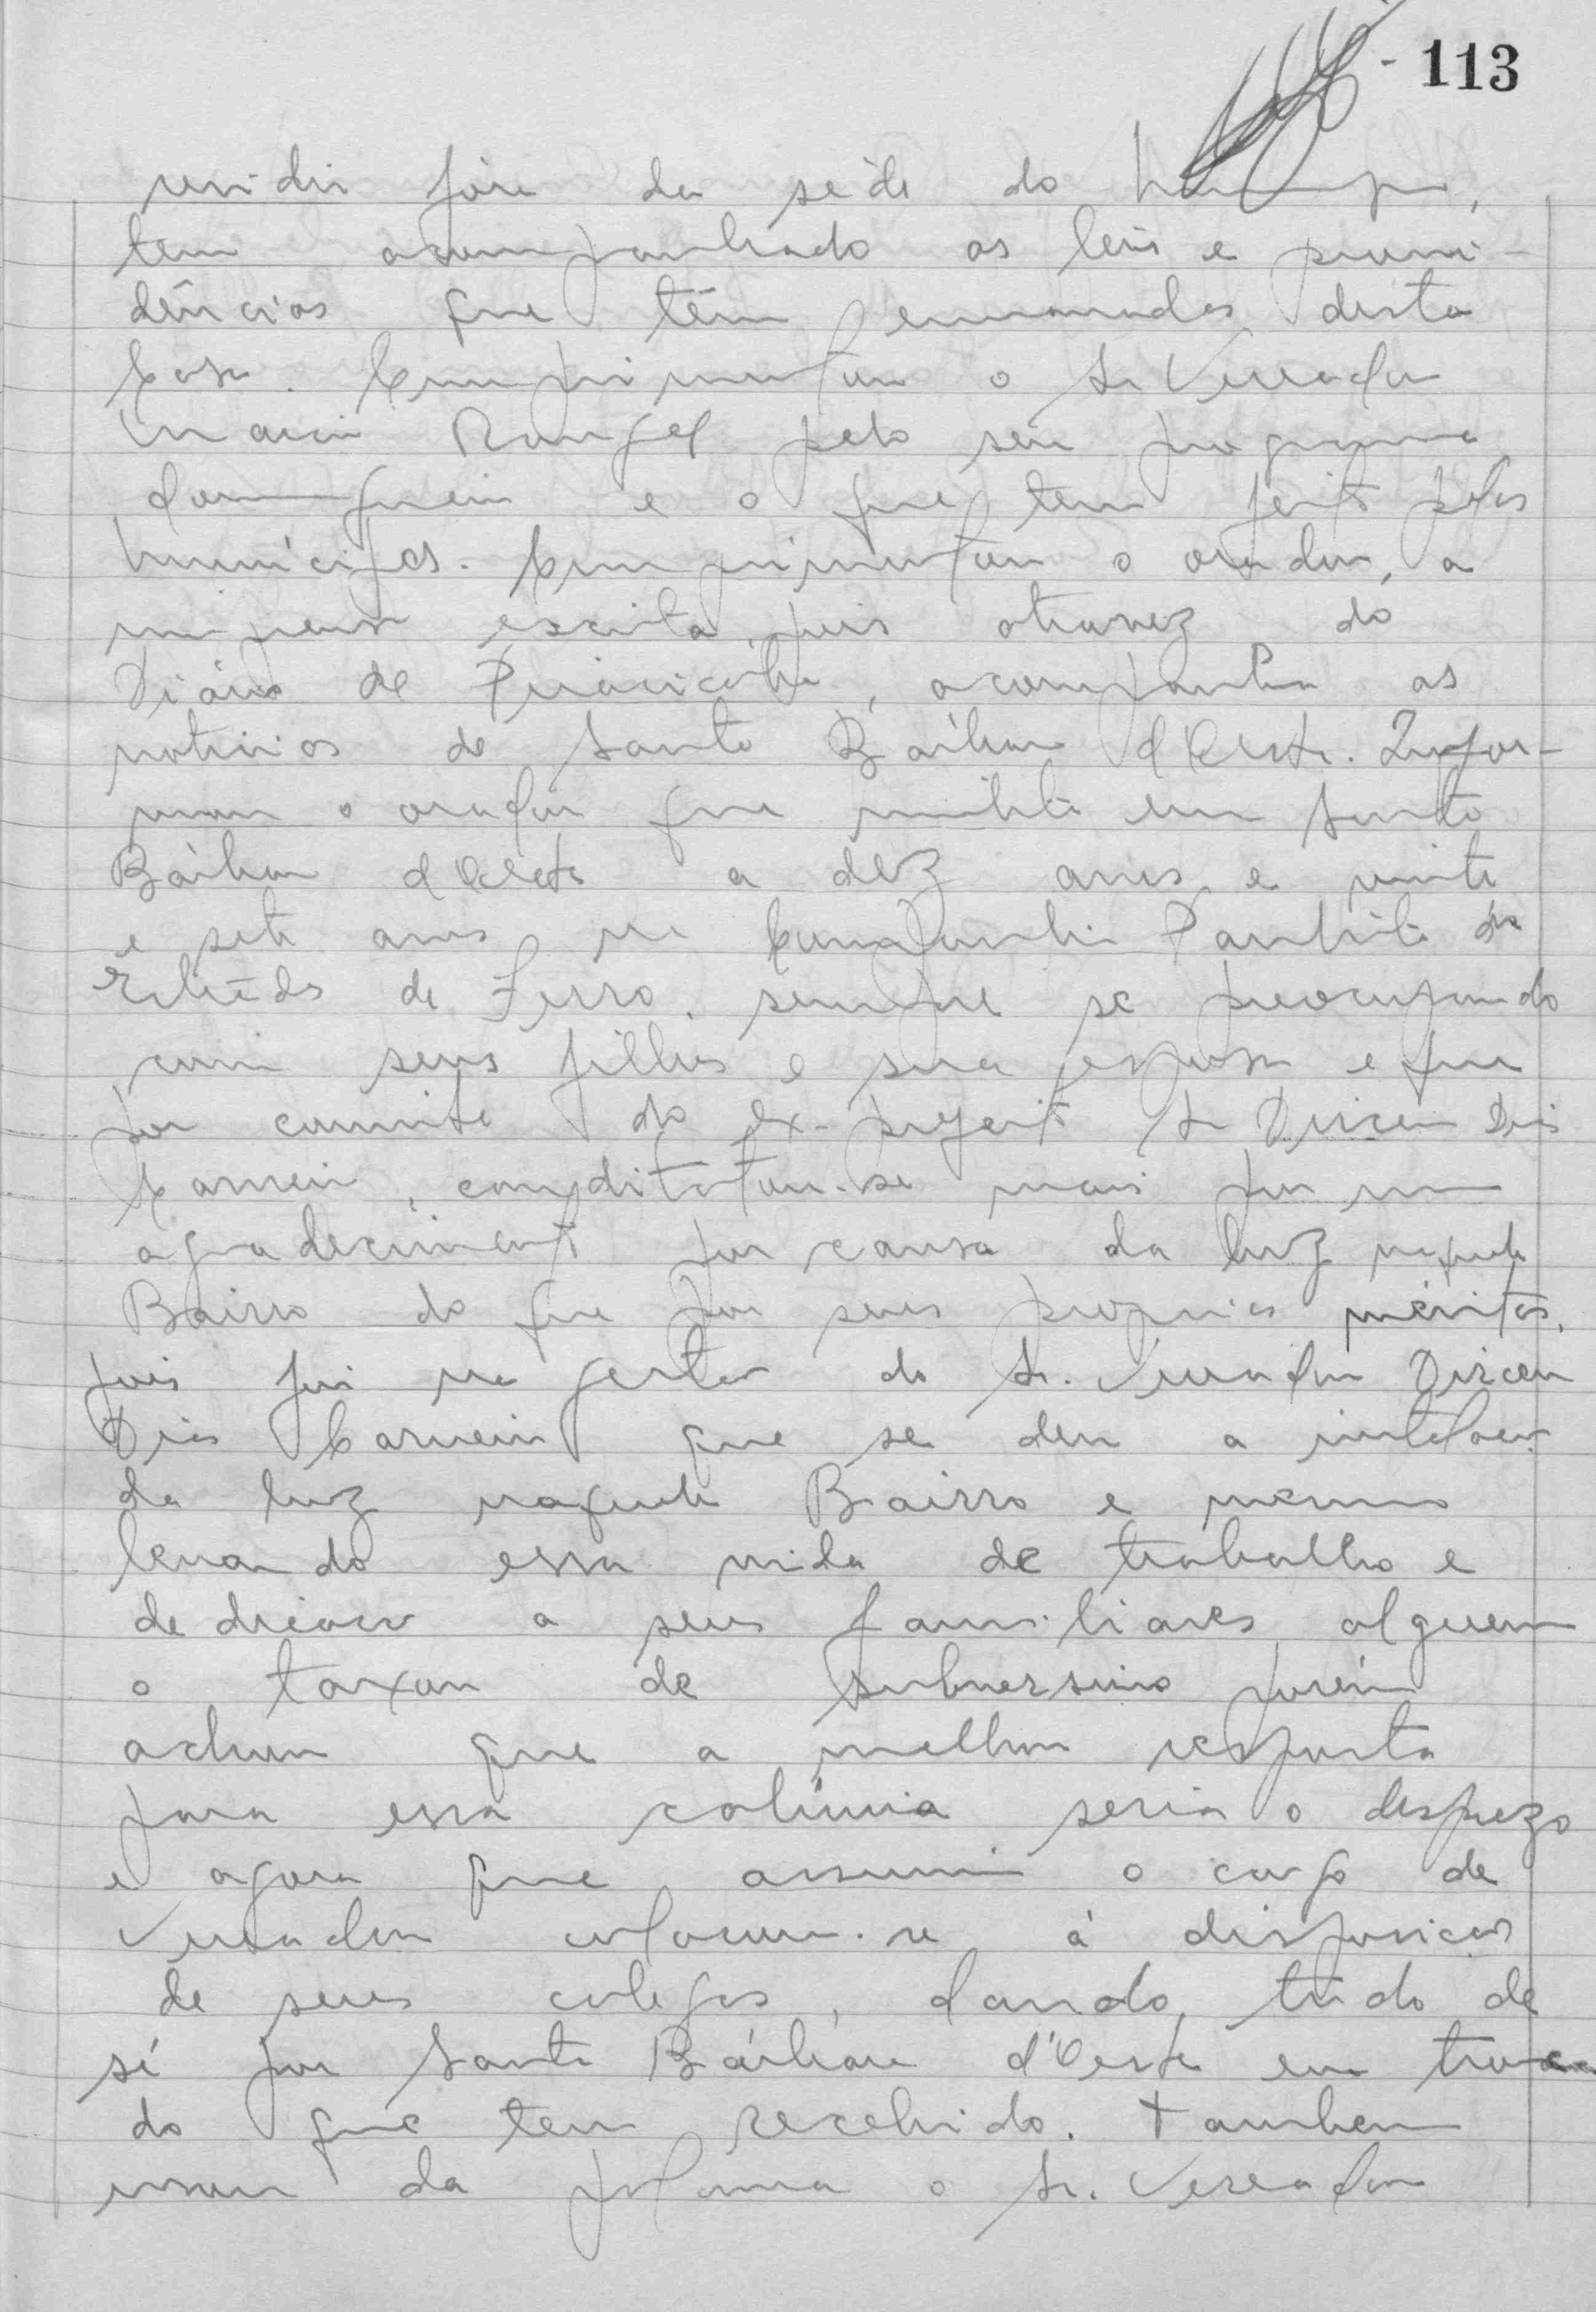 113
residir fóra da séde do Municipio,
tem acompanhado as leis e provi-
dências que têm emanados desta
Casa. Cumprimentou o Sr Vereador
Rangel pelo seu programa
e o que tem feito pelos
Municipes. Cumprimentou o orador, a
imprensa escrita, pois atravez do
Diário de Piracicaba, acompanha as
noticias de Santa Bárbara d'Oeste. Infor-
mou o orador que milita em Santa
Bárbara d'Oeste a dez anos e vinte
e sete anos na Companhia Paulista de
Estrada de Ferro, sempre se preocupando
com seus filhos e sua esposa e que
por convite do ex-prefeito Sr Dirceu Dias
Carneiro, candidatou-se mais por um
agradecimento por causa da luz naquele
Bairro do que por seus proprios méritos,
pois foi na gestão do Sr. Vereador Dirceu
Dias Carneiro que se deu a instalação
da luz naquele Bairro e mesmo
levando essa vida de trabalho e
dedicação a seus familiares, alguem
o taxou de subversivo porém
achou que a melhor resposta
para essa calúnia seria o desprezo
e agora que assumiu o cargo de
Vereador colocou-se á disposição
de seus colegas, dando tudo de
sí por Santa Bárbara d'Oeste em troca
do que tem recebido. Tambem
usou da palavra o Sr. Vereador